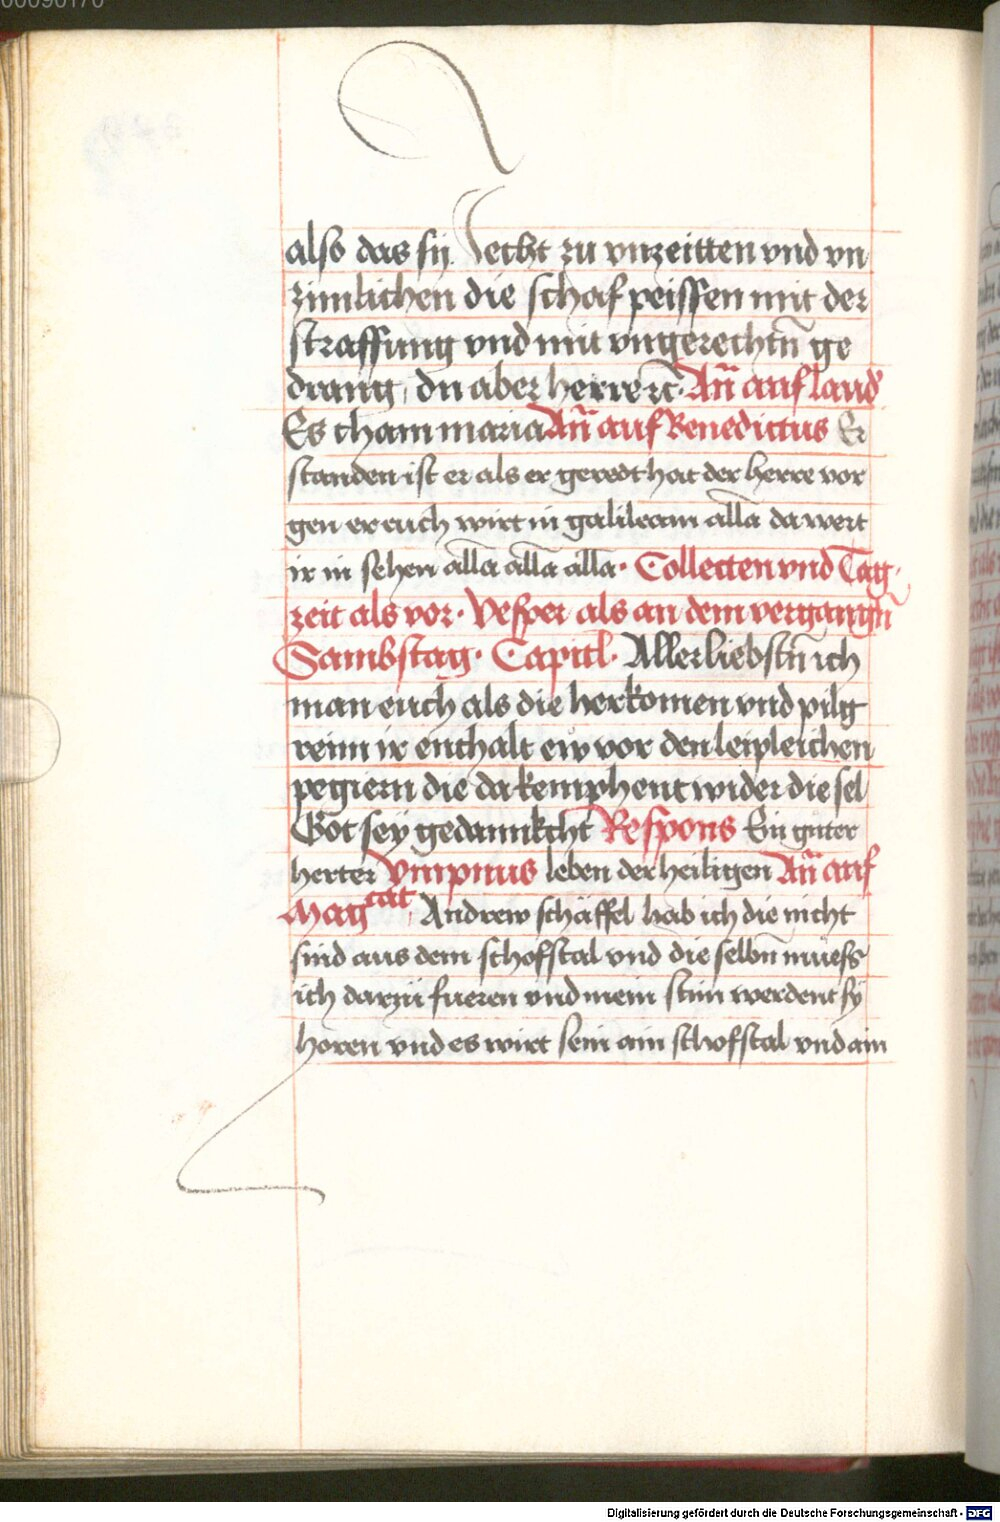 00090170
also das sy icht zu vnzeitten vnd vn
zimlichen die schaf peissen mit der
straffung vnd mit vngerechtn̄ ge
drang, du aber herre ꝛc̄. An̄ auf laud
Es cham maria An̄ auf Benedictus Er
standen ist er als er geredt hat der herre vor
gen er euch wirt in galileam allā da wert
ir in sehen allā allā allā. Collecten vnd Tag
zeit als vor. Vesper als an dem vergangn̄
Sambstag. Capitl. Allerliebstn̄ ich
man euch als die herkomen vnd pilg
reim ir enthalt ew vor den leipleichen
pegiern die da kemphent wider die sel
Got sey gedannkcht Respons Ein guter
herter Vmpnus leben der heiligen An̄ auf
Magcat, Andrew schäffel hab ich die nicht
sind aus dem schofstal vnd die selbn̄ müess
ich darzü fueren vnd mein stim werdent sy
horen vnd es wirt sein ain schofstal vnd ain
Digitalisierung gefördert durch die Deutsche Forschungsgemeinschaft - DFG